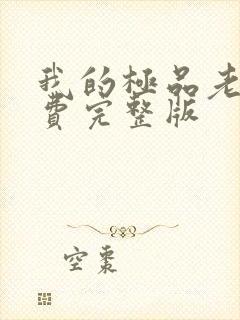 我的極品老
費完整版
空棗